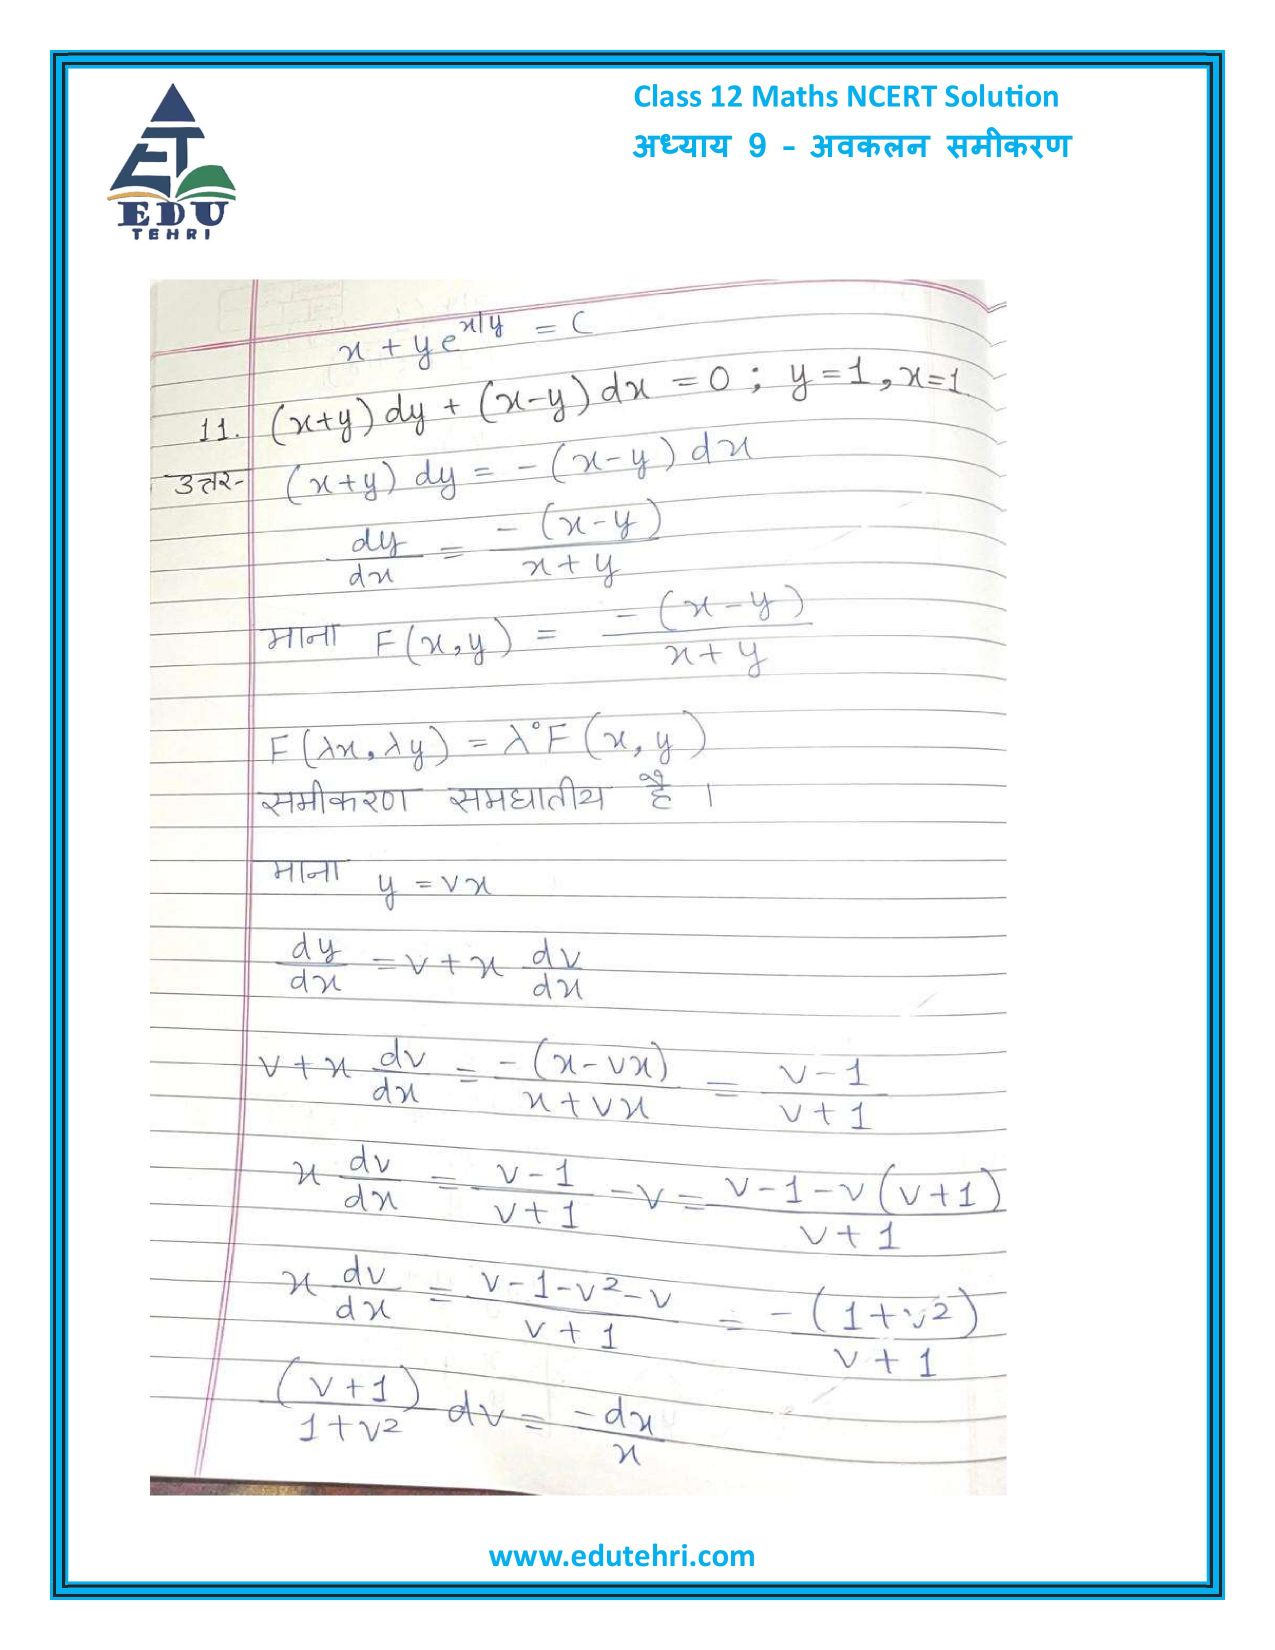 Class 12 Maths NCERT Solution
अध्याय 9 - अवकलन समीकरण
EDU
TEHRI
x + ye^{x/y} = C
11. (x+y) dy + (x-y) dx = 0 ; y=1, x=1.
उत्तर- (x+y) dy = -(x-y) dx
dy/dx = -(x-y)/(x+y)
माना F(x,y) = -(x-y)/(x+y)
F(λx, λy) = λ°F(x, y)
समीकरण समघातीय है ।
माना y = vx
dy/dx = v + x dv/dx
v + x dv/dx = -(x-vx)/(x+vx) = (v-1)/(v+1)
x dv/dx = (v-1)/(v+1) - v = (v-1-v(v+1))/(v+1)
x dv/dx = (v-1-v²-v)/(v+1) = -(1+v²)/(v+1)
(v+1)/(1+v²) dv = -dx/x
www.edutehri.com